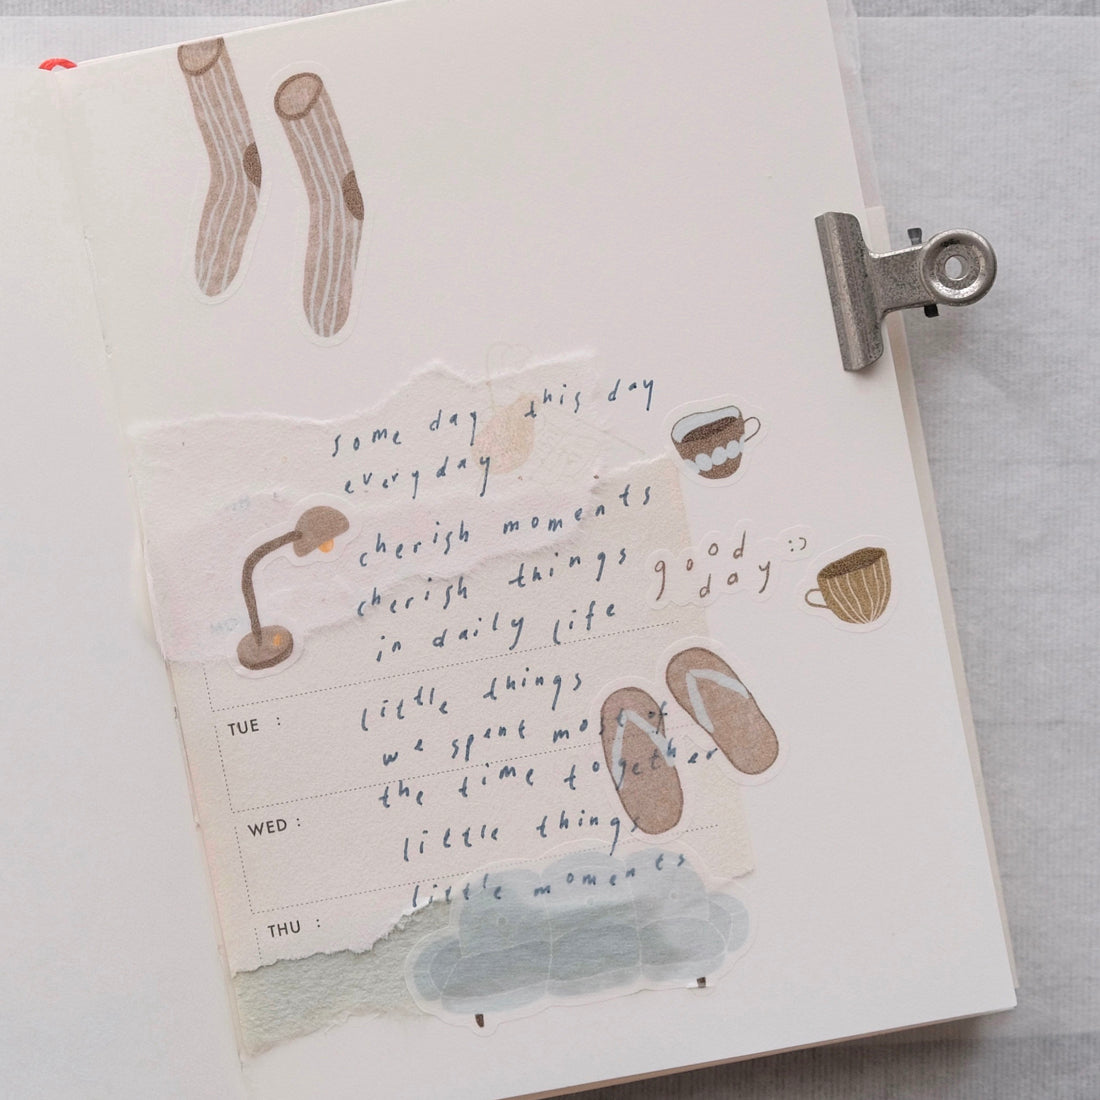 some day this day
everyday
cherish moments
cherish things
in daily life
good
day :)
little things
we spent most of
the time together
little things
little moments
TUE :
WED :
THU :